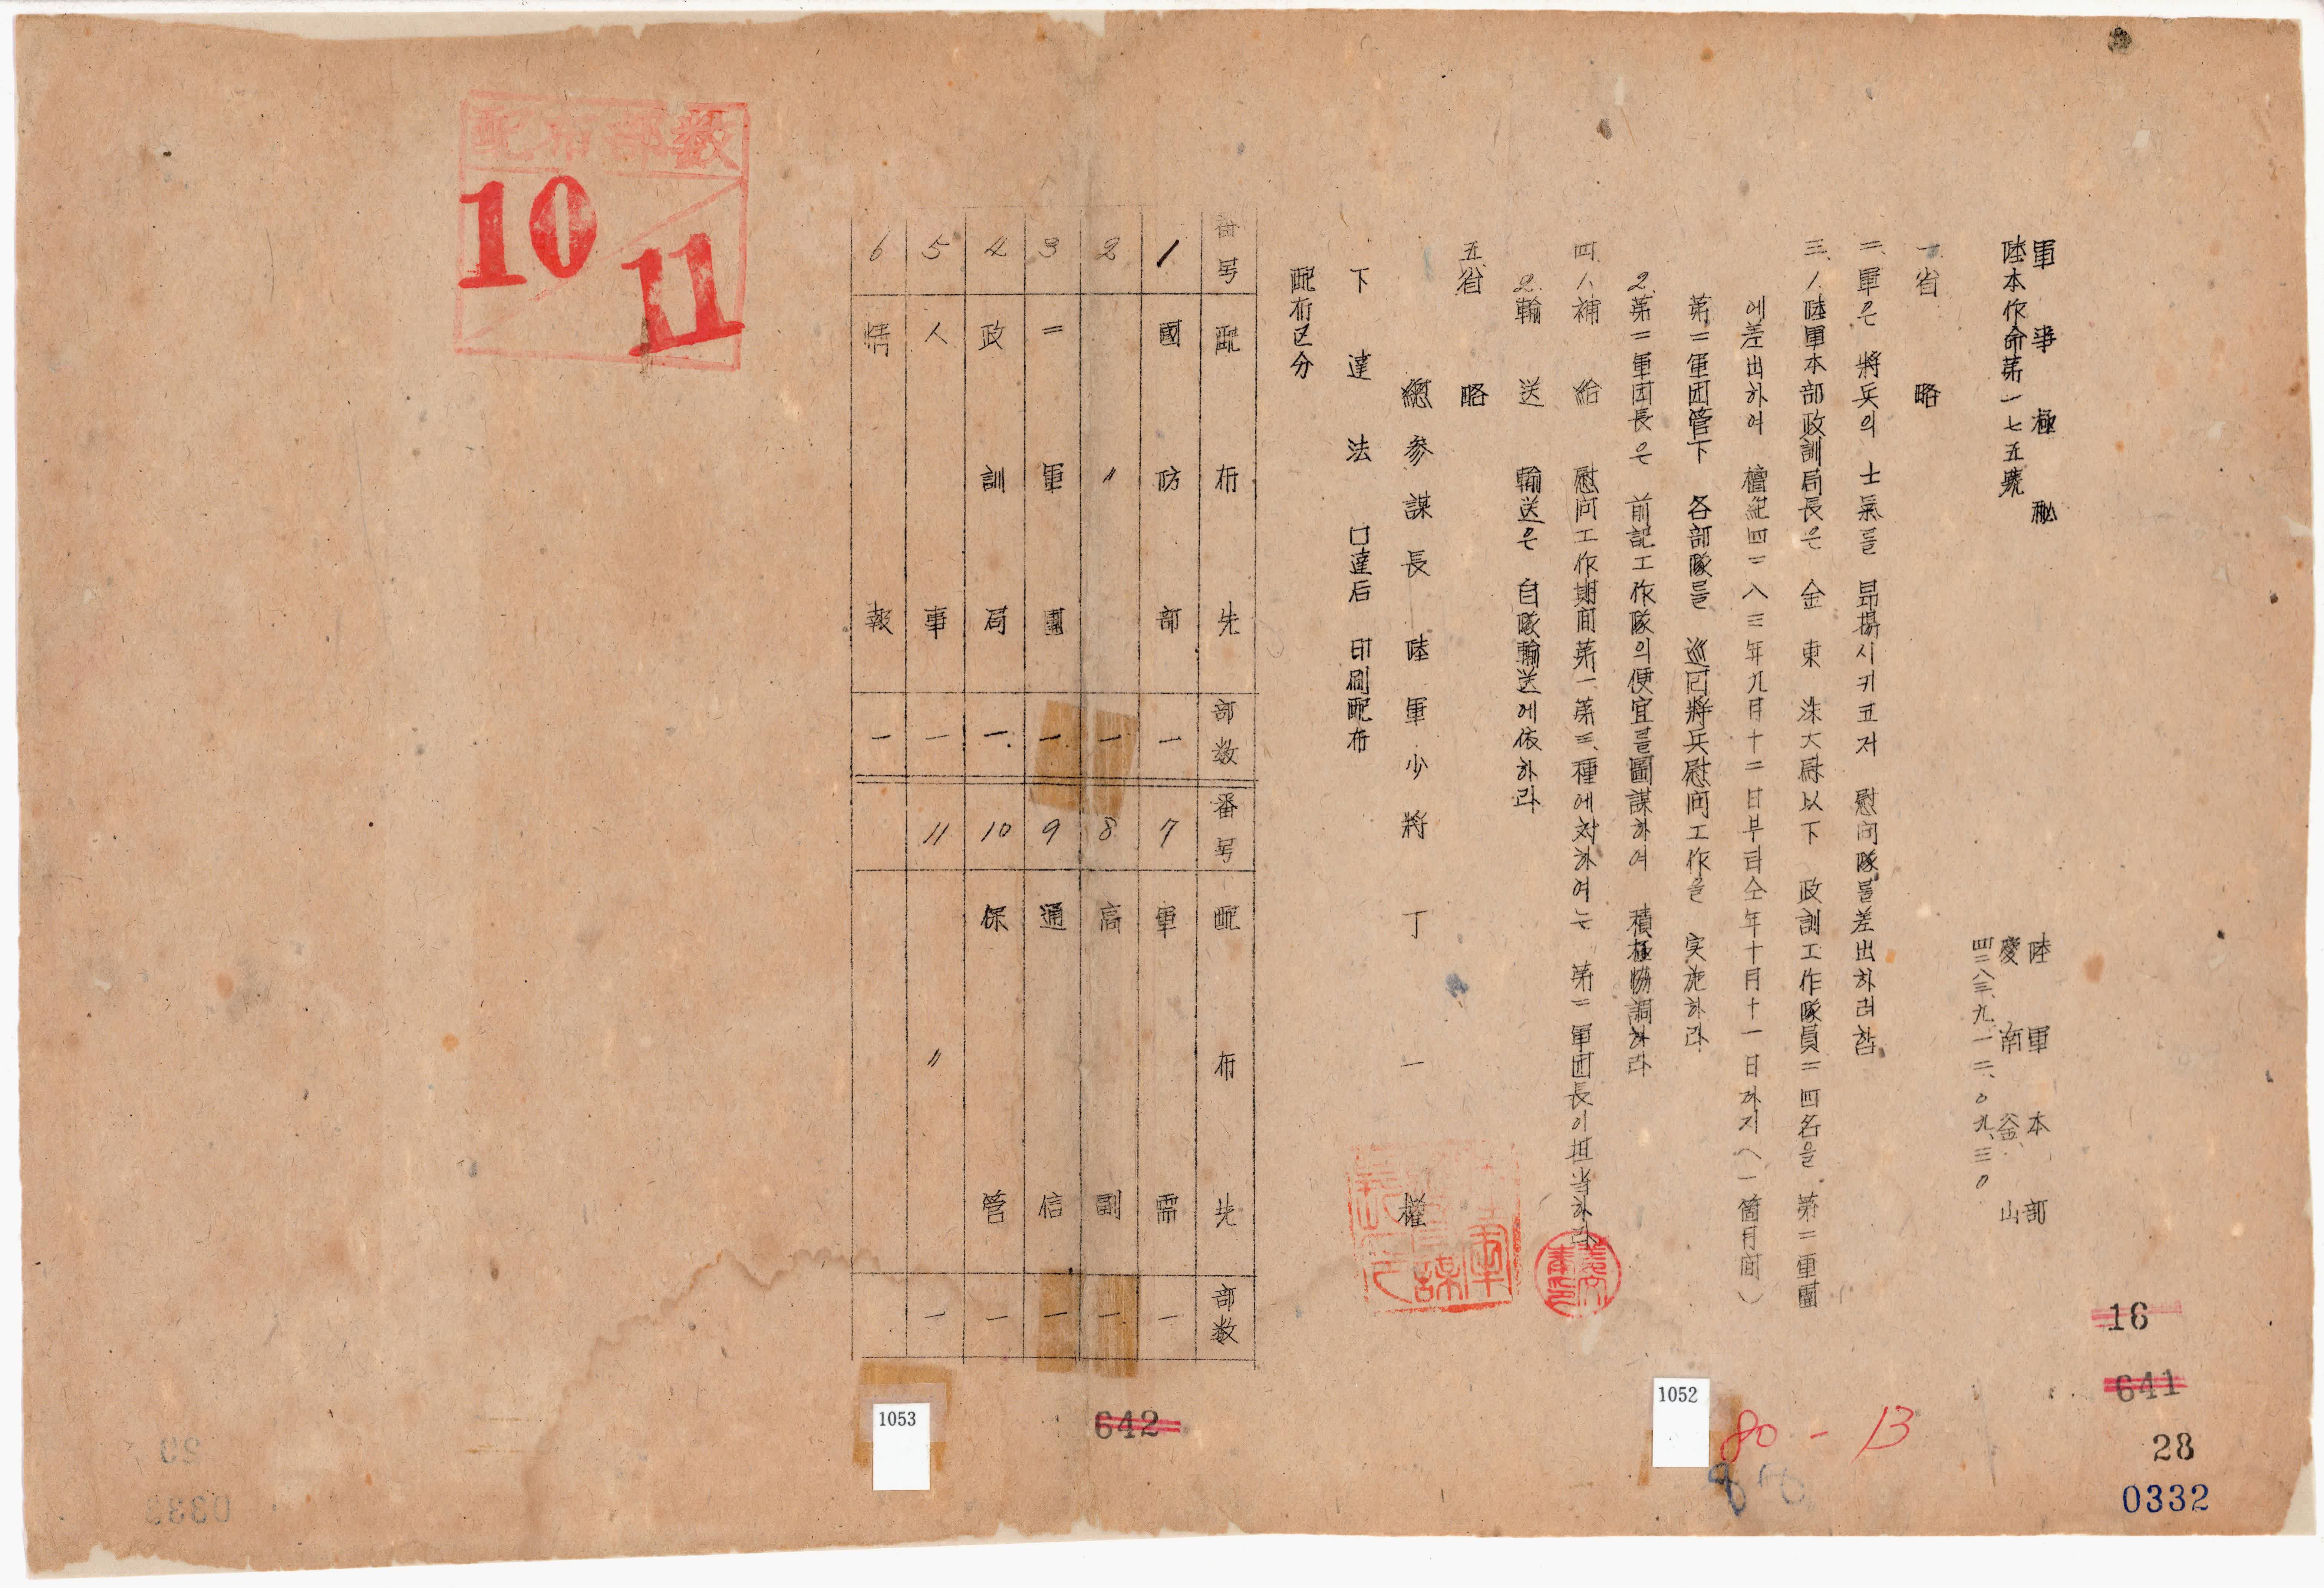 軍事極秘
陸本作命第一七五號
陸軍本部
慶南 釜山
四二八三、九、一二、〇九、三〇
一、省略
二、軍은 將兵의 士氣를 昻揚시키고저 慰问隊를差出하려함
三、1、陸軍本部政訓局長은 金東洙大尉以下 政訓工作隊員二四名을 第二軍團
에差出하여 檀紀四二八三年九月十二日부터仝年十月十一日까지(一箇月间)
第二軍团管下 各部隊를 巡回將兵慰问工作을 実施하라
2、第二軍団長은 前記工作隊의便宜를圖謀하여 積極協調하라
四、1、補給 慰问工作期间第一第三種에対하여는 第二軍团長이担当하라
2、輸送 輸送은 自隊輸送에依하라
五、省略
總參謀長 陸軍少將 丁一權
下達法 口達后 印刷配布
配布区分
番号 配布先 部数 番号 配布先 部数
1 國防部 一 7 軍需 一
2 〃 一 8 高副 一
3 二軍團 一 9 通信 一
4 政訓局 一 10 保管 一
5 人事 一 11 〃 一
6 情報 一
配布部数
10
11
16
641
28
0332
1052
80-13
642
1053